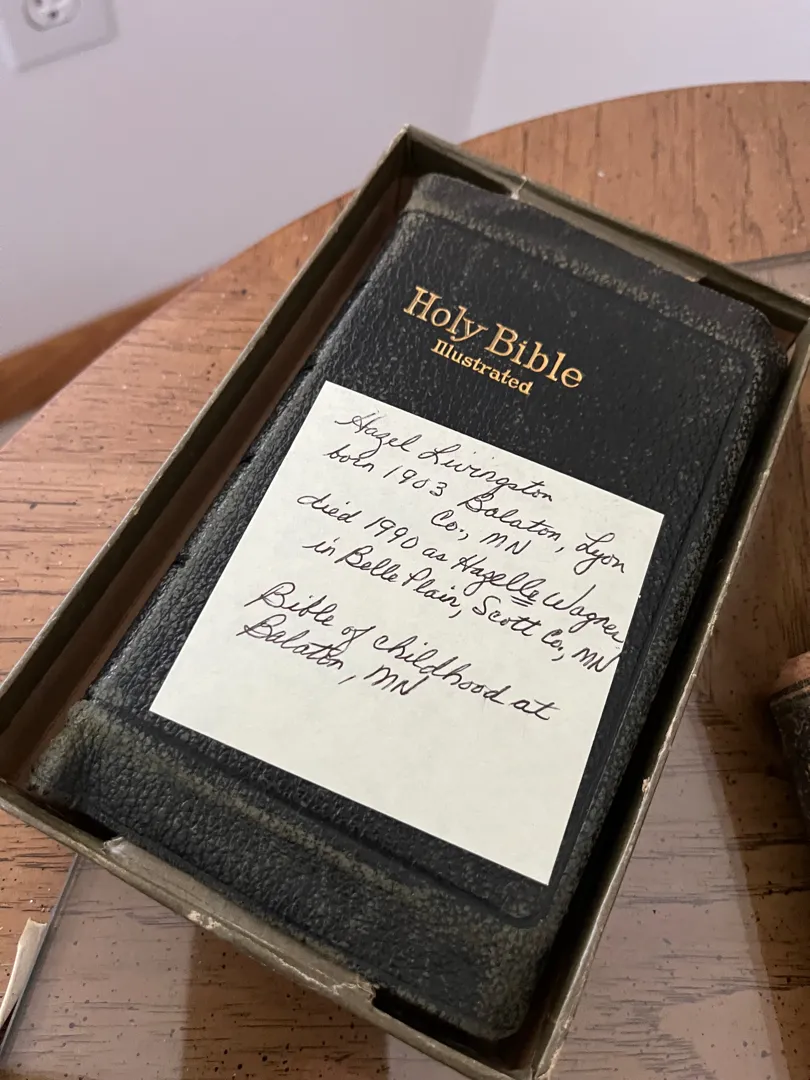 Holy Bible
Illustrated
Hazel Livingston
born 1903 Balaton, Lyon
Co., MN
died 1990 as Hazelle Wagner
in Belle Plain, Scott Co, MN
Bible of childhood at
Balaton, MN